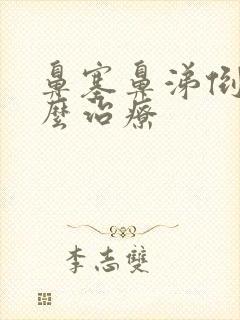 鼻塞鼻涕倒
麼治療
李志雙